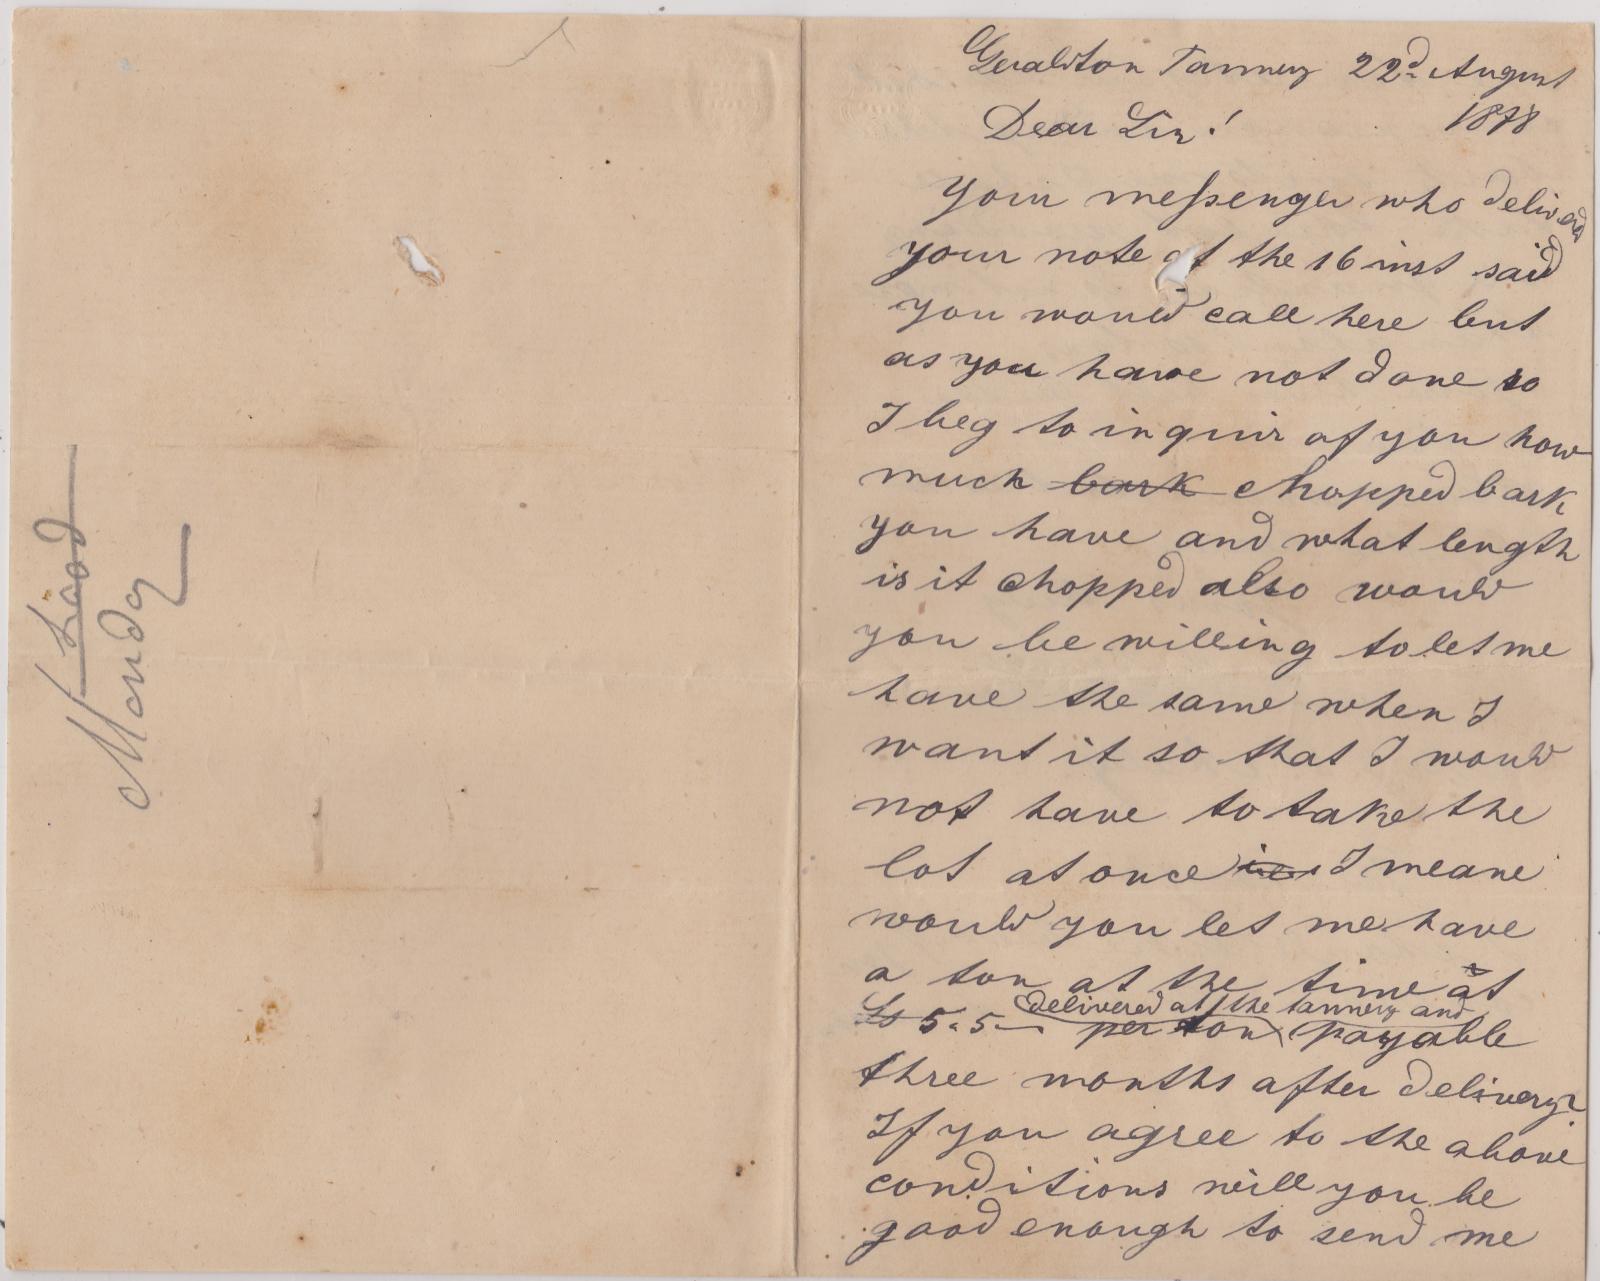 Geraldton Tannery 22d August
1878
Dear Sir!
Your messenger who delivered
your note of the 16 inst said
you would call here but
as you have not done so
I beg to inquir of you how
much bark chopped bark
you have and what length
is it chopped also would
you be willing to let me
have the same when I
want it so that I would
not have to take the
lot at once ie. I meane
would you let me have
a ton at the time at
delivered at the tannery and
£5.5- per ton payable
three months after delivery?
If you agree to the above
conditions will you be
good enough to send me